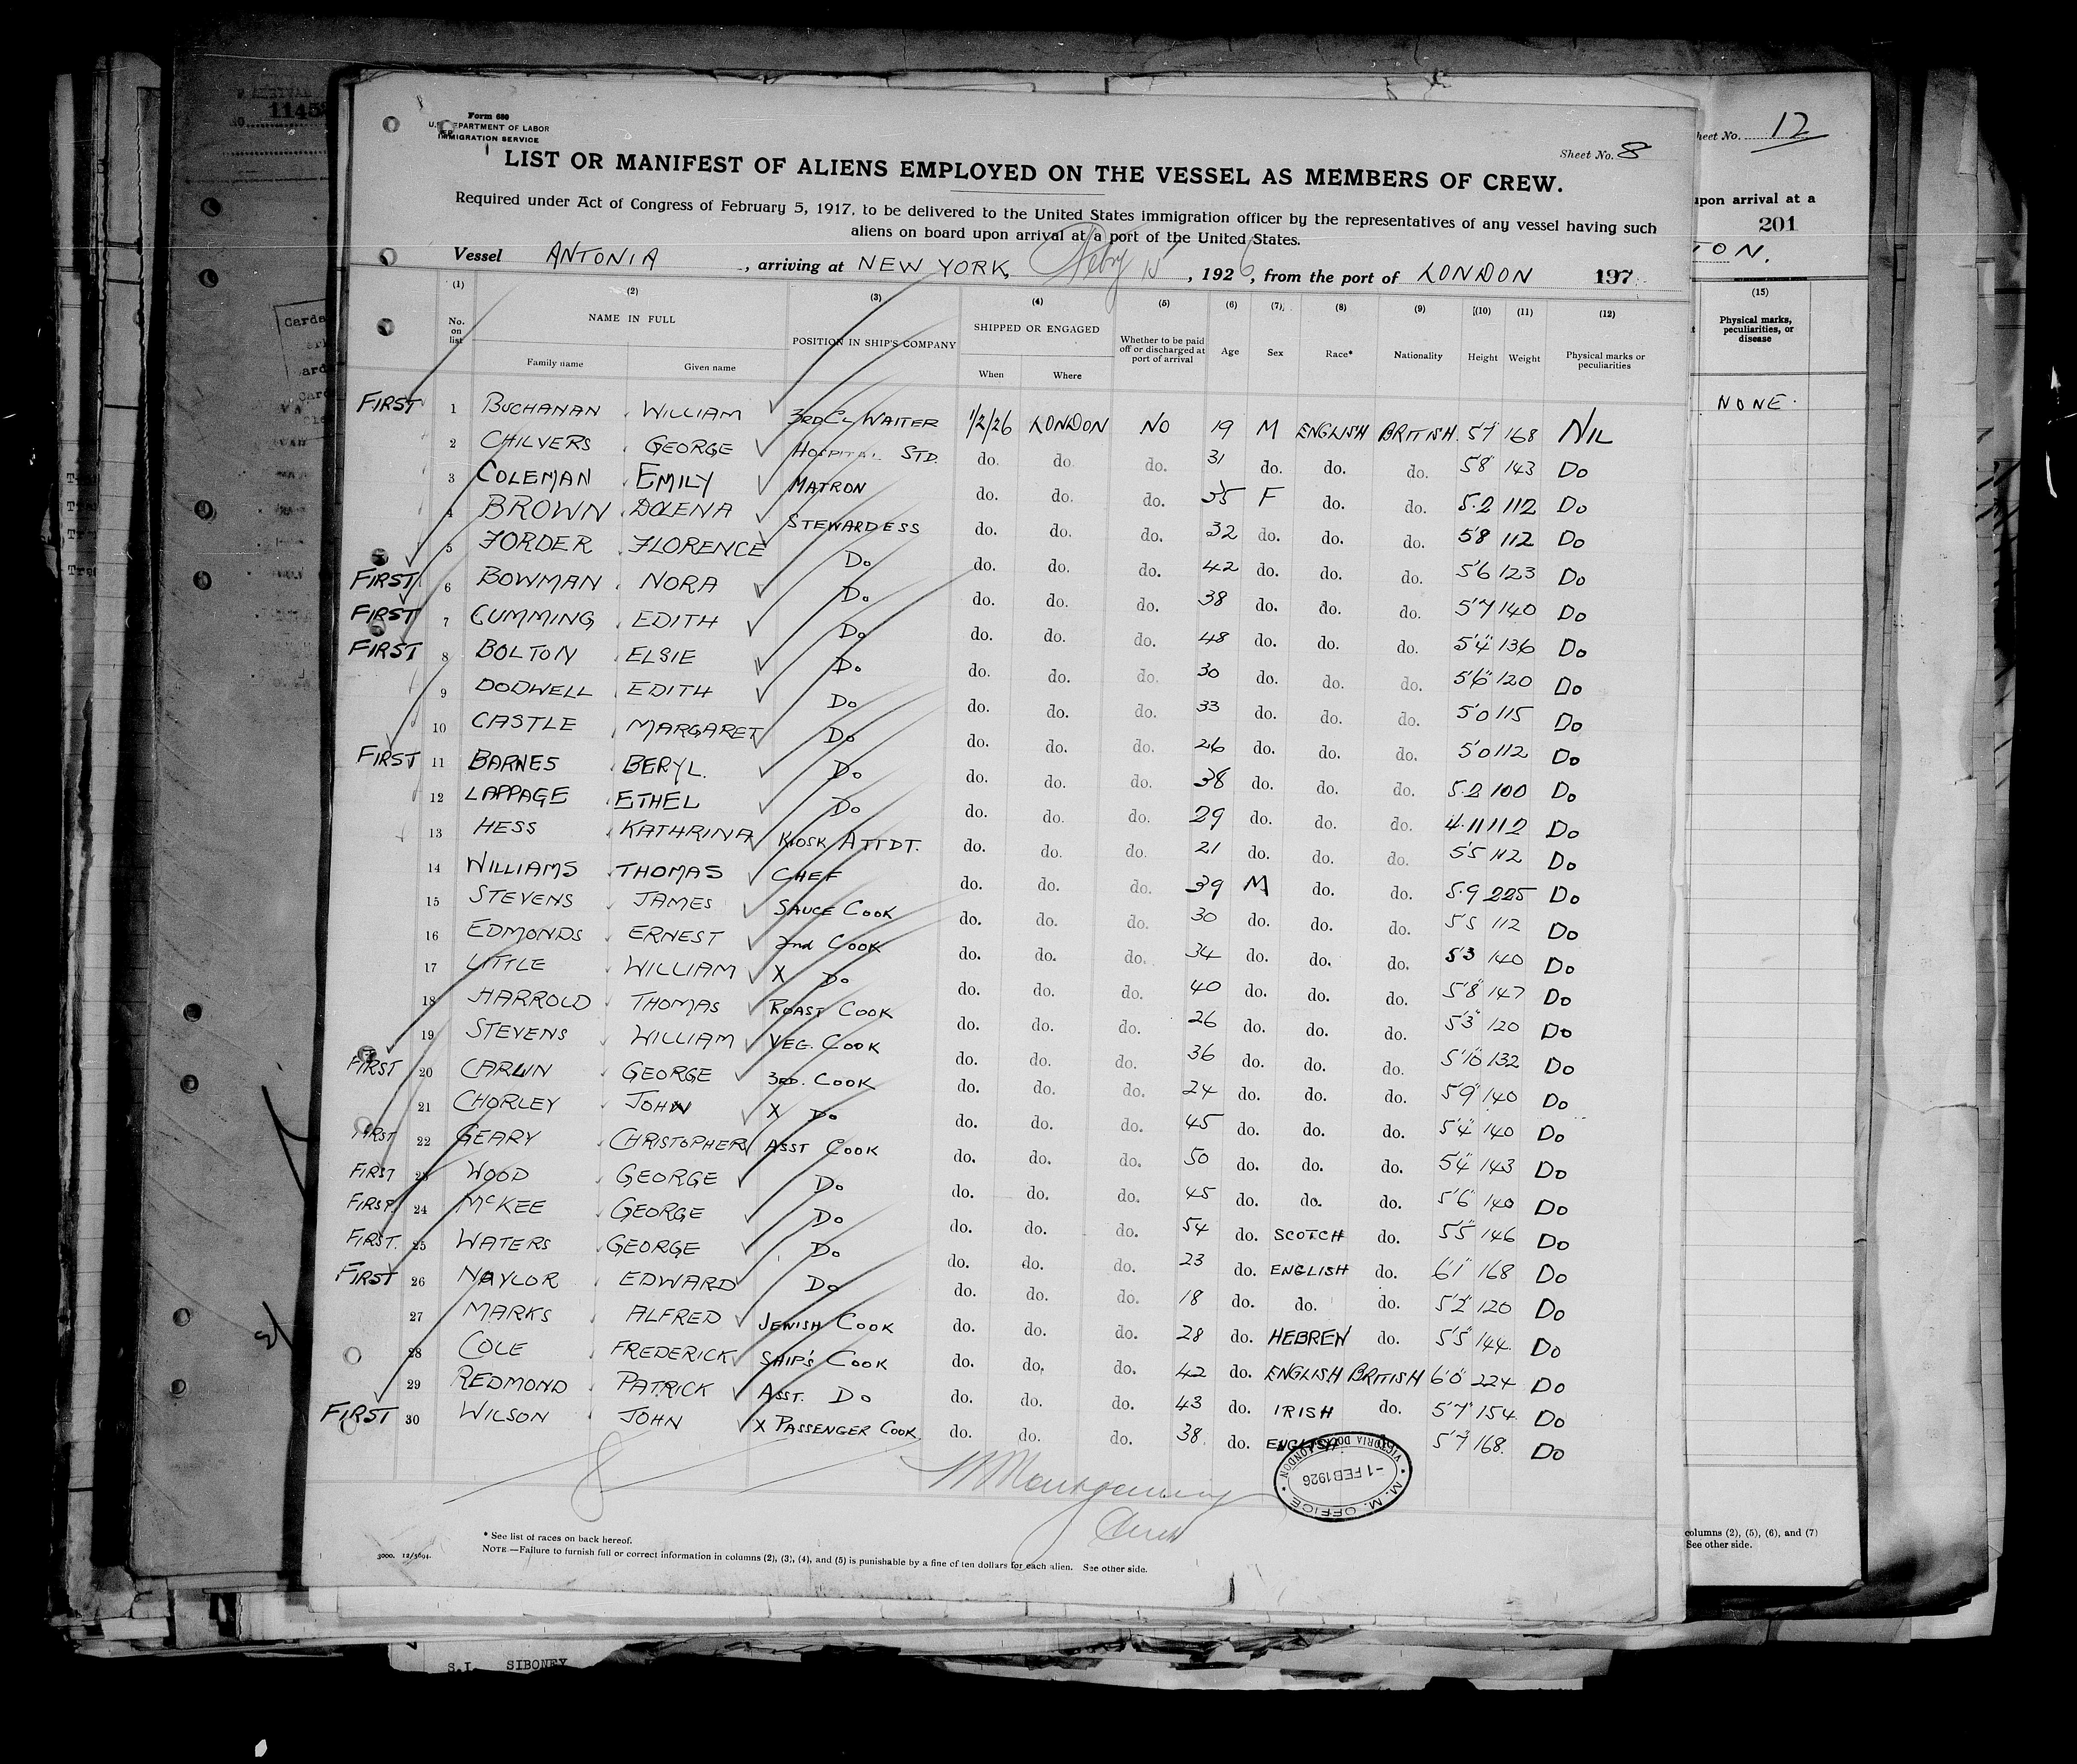 Form 680
U.S. DEPARTMENT OF LABOR
IMMIGRATION SERVICE
Sheet No. 8
LIST OR MANIFEST OF ALIENS EMPLOYED ON THE VESSEL AS MEMBERS OF CREW.
Required under Act of Congress of February 5, 1917, to be delivered to the United States immigration officer by the representatives of any vessel having such
aliens on board upon arrival at a port of the United States.
Vessel ANTONIA, arriving at NEW YORK, Feby 15, 1926, from the port of LONDON 197
(1) (2) (3) (4) (5) (6) (7) (8) (9) (10) (11) (12)
No. on list NAME IN FULL Family name Given name POSITION IN SHIP'S COMPANY SHIPPED OR ENGAGED When Where Whether to be paid off or discharged at port of arrival Age Sex Race* Nationality Height Weight Physical marks or peculiarities
FIRST 1 BUCHANAN WILLIAM 3RD CL WAITER 1/2/26 LONDON NO 19 M ENGLISH BRITISH 5'7 168 NIL
2 CHILVERS GEORGE HOSPITAL STD. do. do. do. 31 do. do. do. 5'8" 143 Do
3 COLEMAN EMILY MATRON do. do. do. 35 F do. do. 5.2 112 Do
4 BROWN DOLENA STEWARDESS do. do. do. 32 do. do. do. 5'8 112 Do
5 FORDER FLORENCE Do do. do. do. 42 do. do. do. 5'6 123 Do
FIRST 6 BOWMAN NORA Do do. do. do. 38 do. do. do. 5'7 140 Do
FIRST 7 CUMMING EDITH Do do. do. do. 48 do. do. do. 5'4" 136 Do
FIRST 8 BOLTON ELSIE Do do. do. do. 30 do. do. do. 5'6" 120 Do
9 DODWELL EDITH Do do. do. do. 33 do. do. do. 5'0 115 Do
10 CASTLE MARGARET Do do. do. do. 26 do. do. do. 5'0 112 Do
FIRST 11 BARNES BERYL. Do do. do. do. 38 do. do. do. 5.2 100 Do
12 LAPPAGE ETHEL Do do. do. do. 29 do. do. do. 4.11 112 Do
13 HESS KATHRINA KIOSK ATTDT. do. do. do. 21 do. do. do. 5'5 112 Do
14 WILLIAMS THOMAS CHEF do. do. do. 39 M do. do. 5.9 225 Do
15 STEVENS JAMES SAUCE COOK do. do. do. 30 do. do. do. 5'5 112 Do
16 EDMONDS ERNEST 2nd COOK do. do. do. 34 do. do. do. 5'3 140 Do
17 LITTLE WILLIAM X Do do. do. do. 40 do. do. do. 5'8" 147 Do
18 HARROLD THOMAS ROAST COOK do. do. do. 26 do. do. do. 5'3" 120 Do
19 STEVENS WILLIAM VEG. COOK do. do. do. 36 do. do. do. 5'10" 132 Do
FIRST 20 CARLIN GEORGE 3RD. COOK do. do. do. 24 do. do. do. 5'9" 140 Do
21 CHORLEY JOHN X Do do. do. do. 45 do. do. do. 5'4" 140 Do
FIRST 22 GEARY CHRISTOPHER ASST COOK do. do. do. 50 do. do. do. 5'4" 143 Do
FIRST 23 WOOD GEORGE Do do. do. do. 45 do. do. do. 5'6" 140 Do
FIRST 24 McKEE GEORGE Do do. do. do. 54 do. SCOTCH do. 5'5" 146 Do
FIRST. 25 WATERS GEORGE Do do. do. do. 23 do. ENGLISH do. 6'1" 168 Do
FIRST 26 NAYLOR EDWARD Do do. do. do. 18 do. do. do. 5'2" 120 Do
27 MARKS ALFRED JEWISH COOK do. do. do. 28 do. HEBREW do. 5'5" 144. Do
28 COLE FREDERICK SHIP'S COOK do. do. do. 42 do. ENGLISH BRITISH 6'0" 224 Do
29 REDMOND PATRICK ASST. DO do. do. do. 43 do. IRISH do. 5'7" 154 Do
FIRST 30 WILSON JOHN X PASSENGER COOK do. do. do. 38. do. ENGLISH 5'7" 168. Do
M. M. OFFICE
-1 FEB 1926
VICTORIA DOCK LONDON
* See list of races on back hereof.
NOTE.—Failure to furnish full or correct information in columns (2), (3), (4), and (5) is punishable by a fine of ten dollars for each alien. See other side.
3000. 12/5694.
Sheet No. 12
upon arrival at a
201
TON.
(15)
Physical marks, peculiarities, or disease
NONE.
columns (2), (5), (6), and (7)
See other side.
S.I. SIBONEY